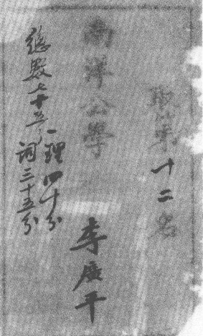 取第十二名
南洋公學
李廣平
總數七十五
理四十分
詞三十五分